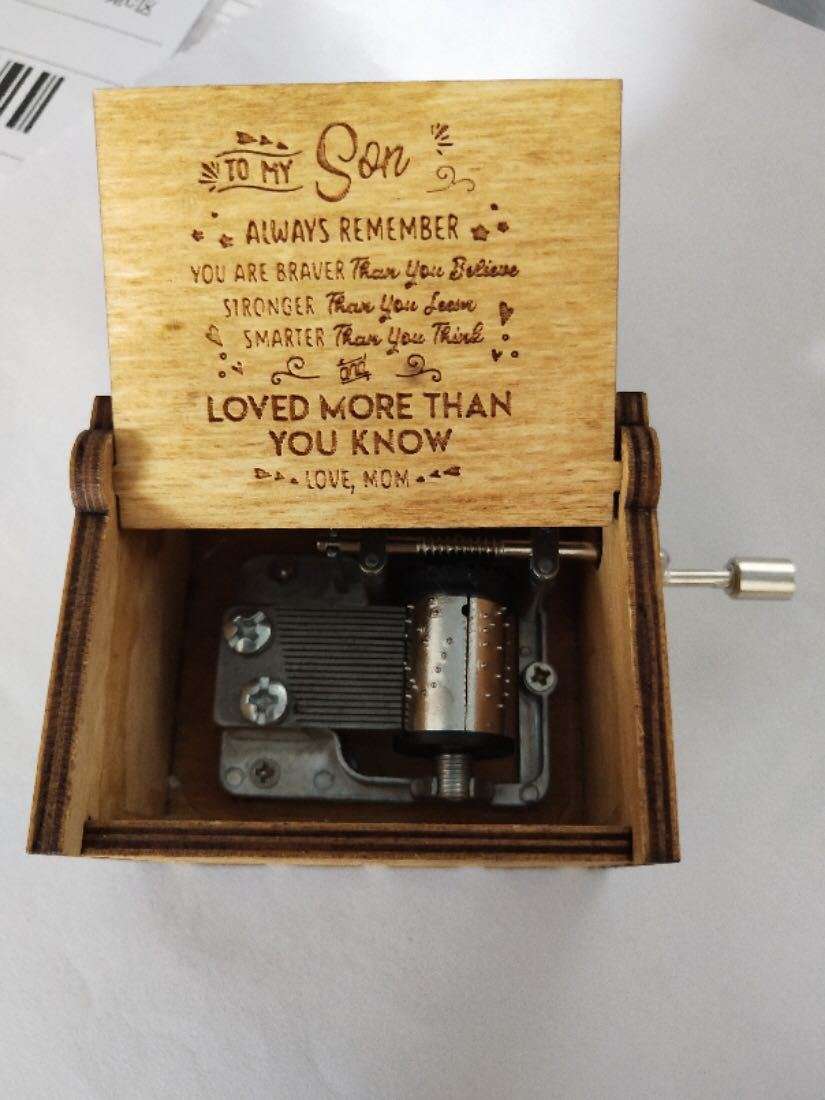 TO MY Son
ALWAYS REMEMBER
YOU ARE BRAVER Than You Believe
STRONGER Than You Seem
SMARTER Than You Think
and
LOVED MORE THAN
YOU KNOW
LOVE, MOM